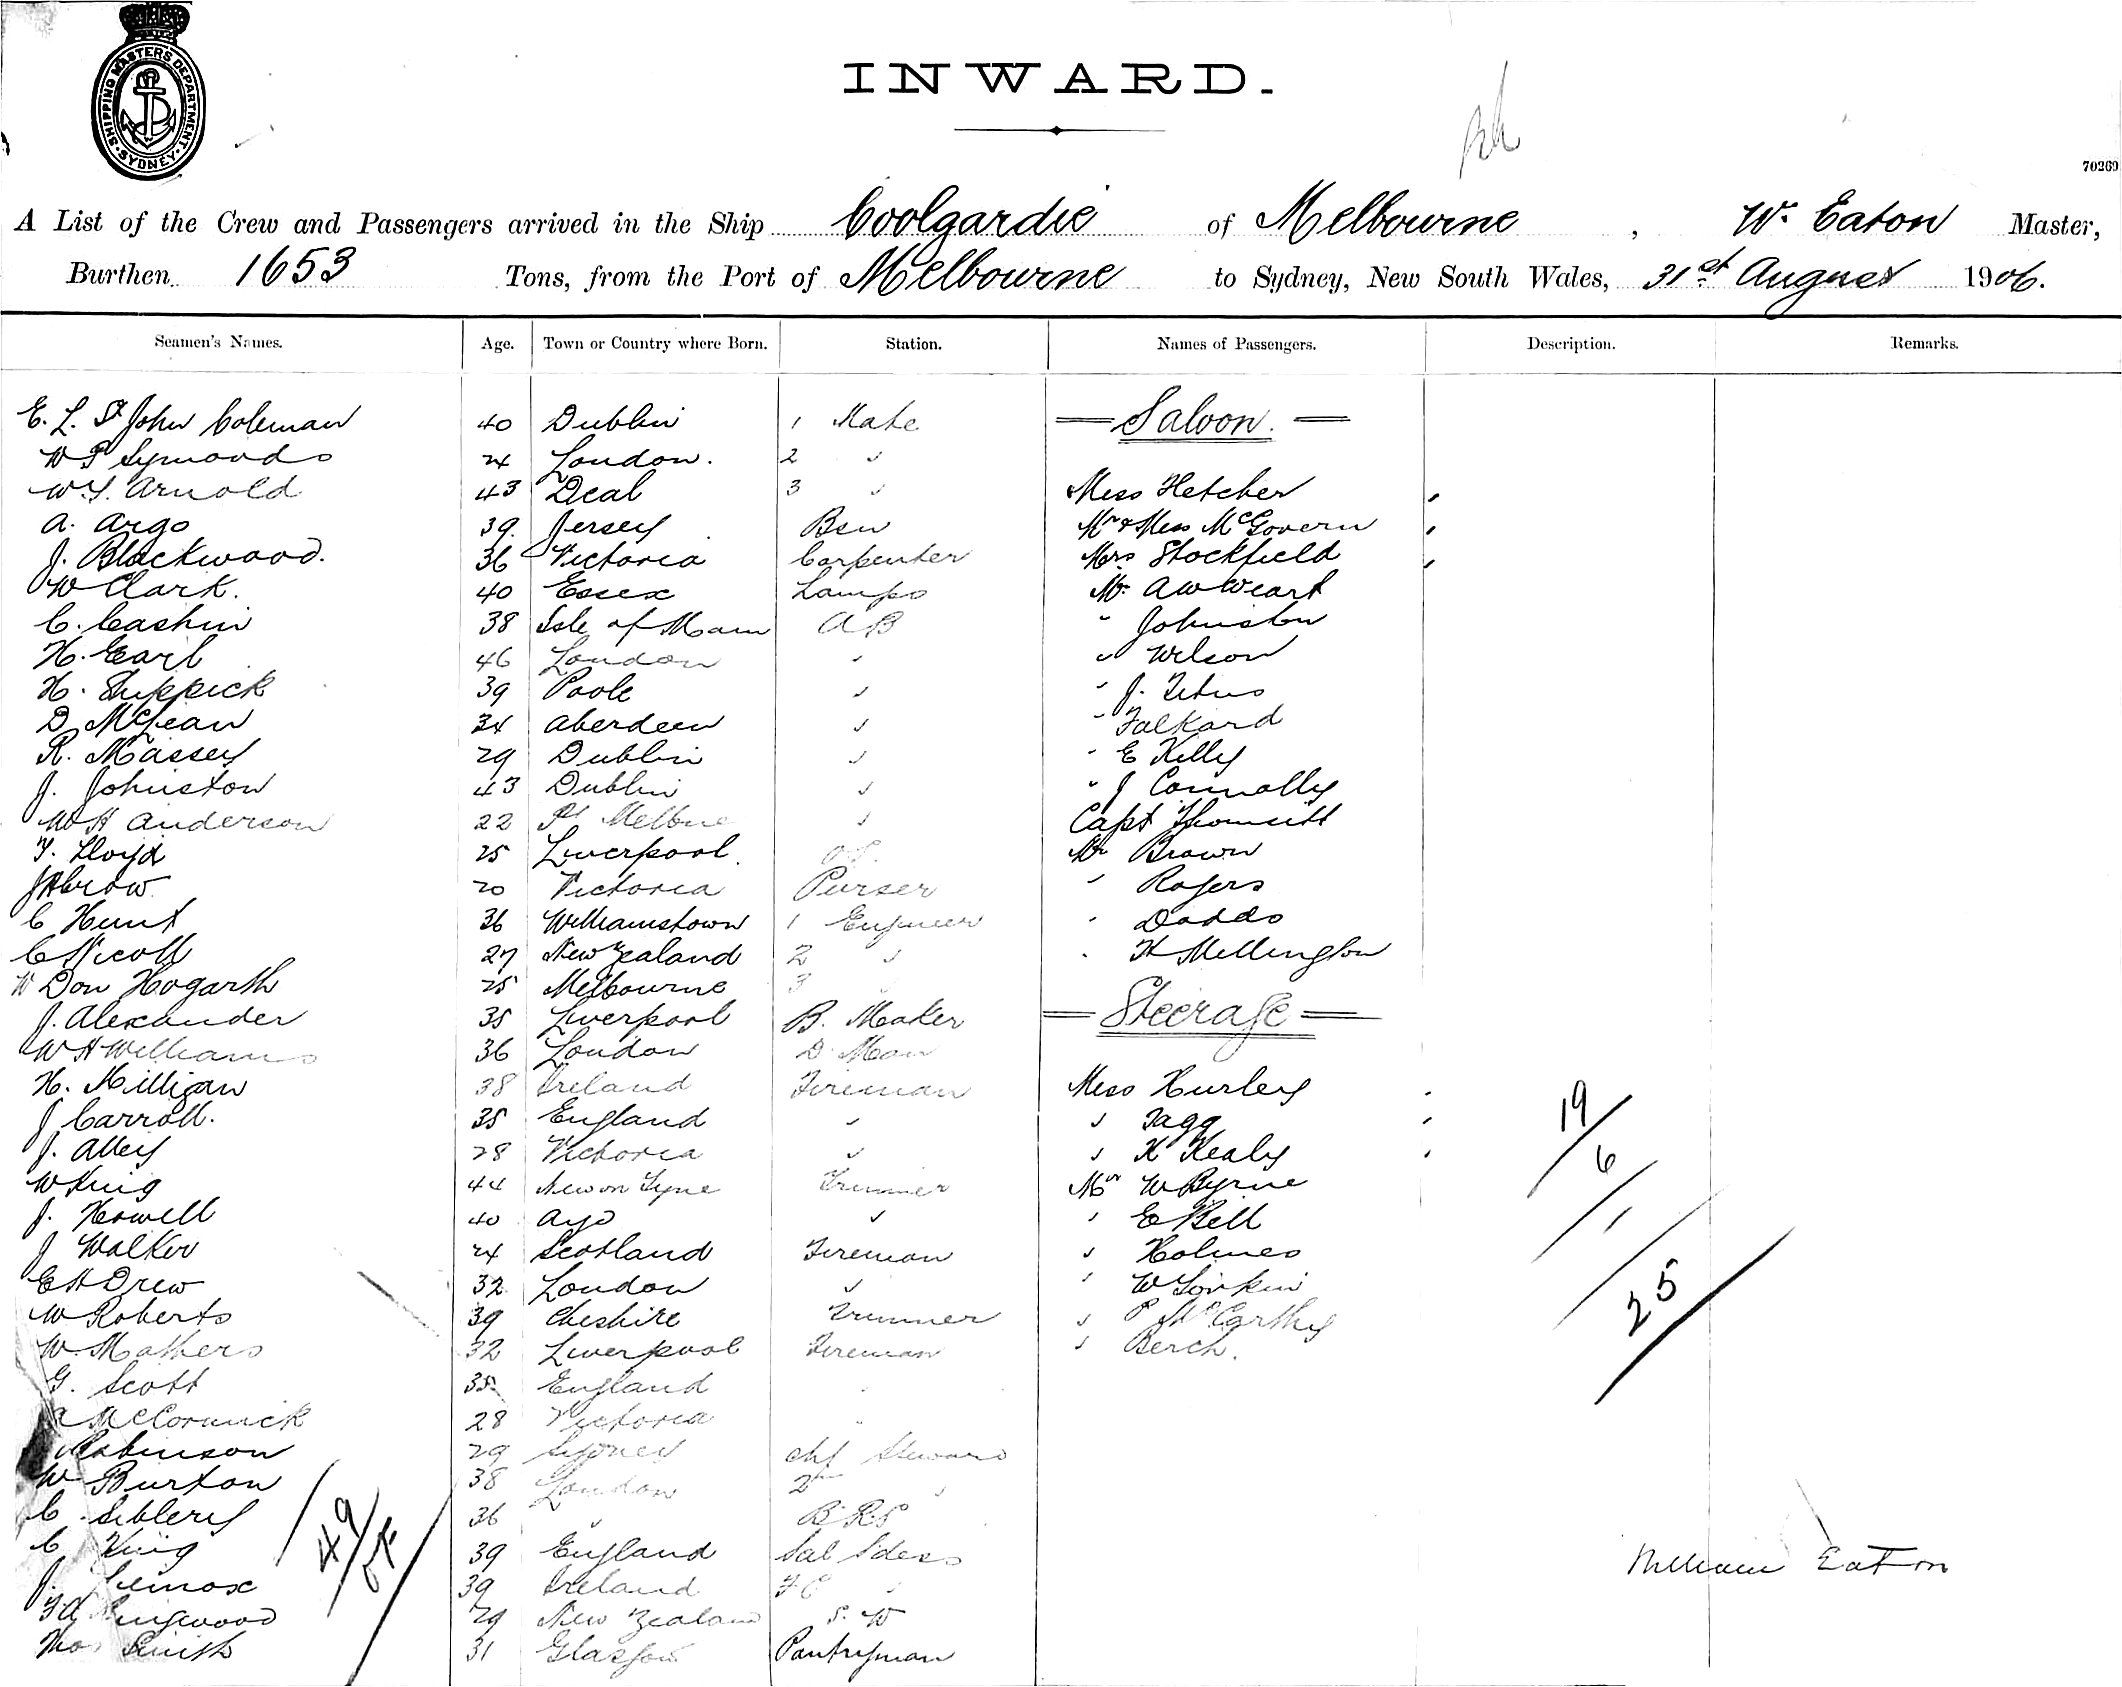 SHIPPING MASTERS DEPARTMENT. SYDNEY.
INWARD.
70269
A List of the Crew and Passengers arrived in the Ship Coolgardie of Melbourne, W. Eaton Master,
Burthen 1653 Tons, from the Port of Melbourne to Sydney, New South Wales, 31st August 1906.
Seamen's Names. Age. Town or Country where Born. Station. Names of Passengers. Description. Remarks.
E. L. St John Coleman 40 Dublin 1 Mate Saloon.
W P Symonds 24 London. 2 "
W. S. Arnold 43 Deal 3 " Miss Fletcher
A. Argo 39. Jersey Bsn Mr & Miss McGovern
J. Blackwood. 36 Victoria Carpenter Mrs Stockfield
W Clark. 40 Essex Lamps Mr. A W Weart
C. Cashin 38 Isle of Mann AB " Johnston
H. Earl 46 London " " Wilson
H. Shippick 39 Poole " " J. Titus
D McLean 34 Aberdeen " " Falkard
R. Massey 29 Dublin " " E Kelly
J. Johnston 43 Dublin " " J Connolly
W H Anderson 22 Pt Melbne " Capt Thomsitt
T. Lloyd 25 Liverpool. O S. Mr Brown
J H Crow 20 Victoria Purser " Rogers
C Hunt 36 Williamstown 1 Engineer " Dodds
C Nicoll 27 New Zealand 2 " " H Millington
W Don Hogarth 25 Melbourne 3 "
J. Alexander 35 Liverpool B. Maker Steerage
W H Williams 36 London D. Man
H. Milligan 38 Ireland Fireman Miss Hurley
J Carroll. 35 England " " Tagg 19
J. Alley 28 Victoria " " K Kealy 6
W King 44 New on Tyne Trimmer Mr W Byrne
J. Howell 40 Ayr " " E Bell 1
J Walker 24 Scotland Fireman " Holmes
E H Drew 32 London " " W 25
W Roberts 39 Cheshire Trimmer " P McCarthy
W Mathers 32 Liverpool Fireman " Berch.
G. Scott 35 England "
McCormick 28 Victoria "
Robinson 29 Sydney Chf Steward
W Burton 38 London 2nd "
C. Sibley 36 " B.R.S
C King 49 39 England Sal Sdess
J. Lenox 39 Ireland F C " William Eaton
Ringwood 29 New Zealand S. W
Thos Smith 31 Glasgow Pantryman